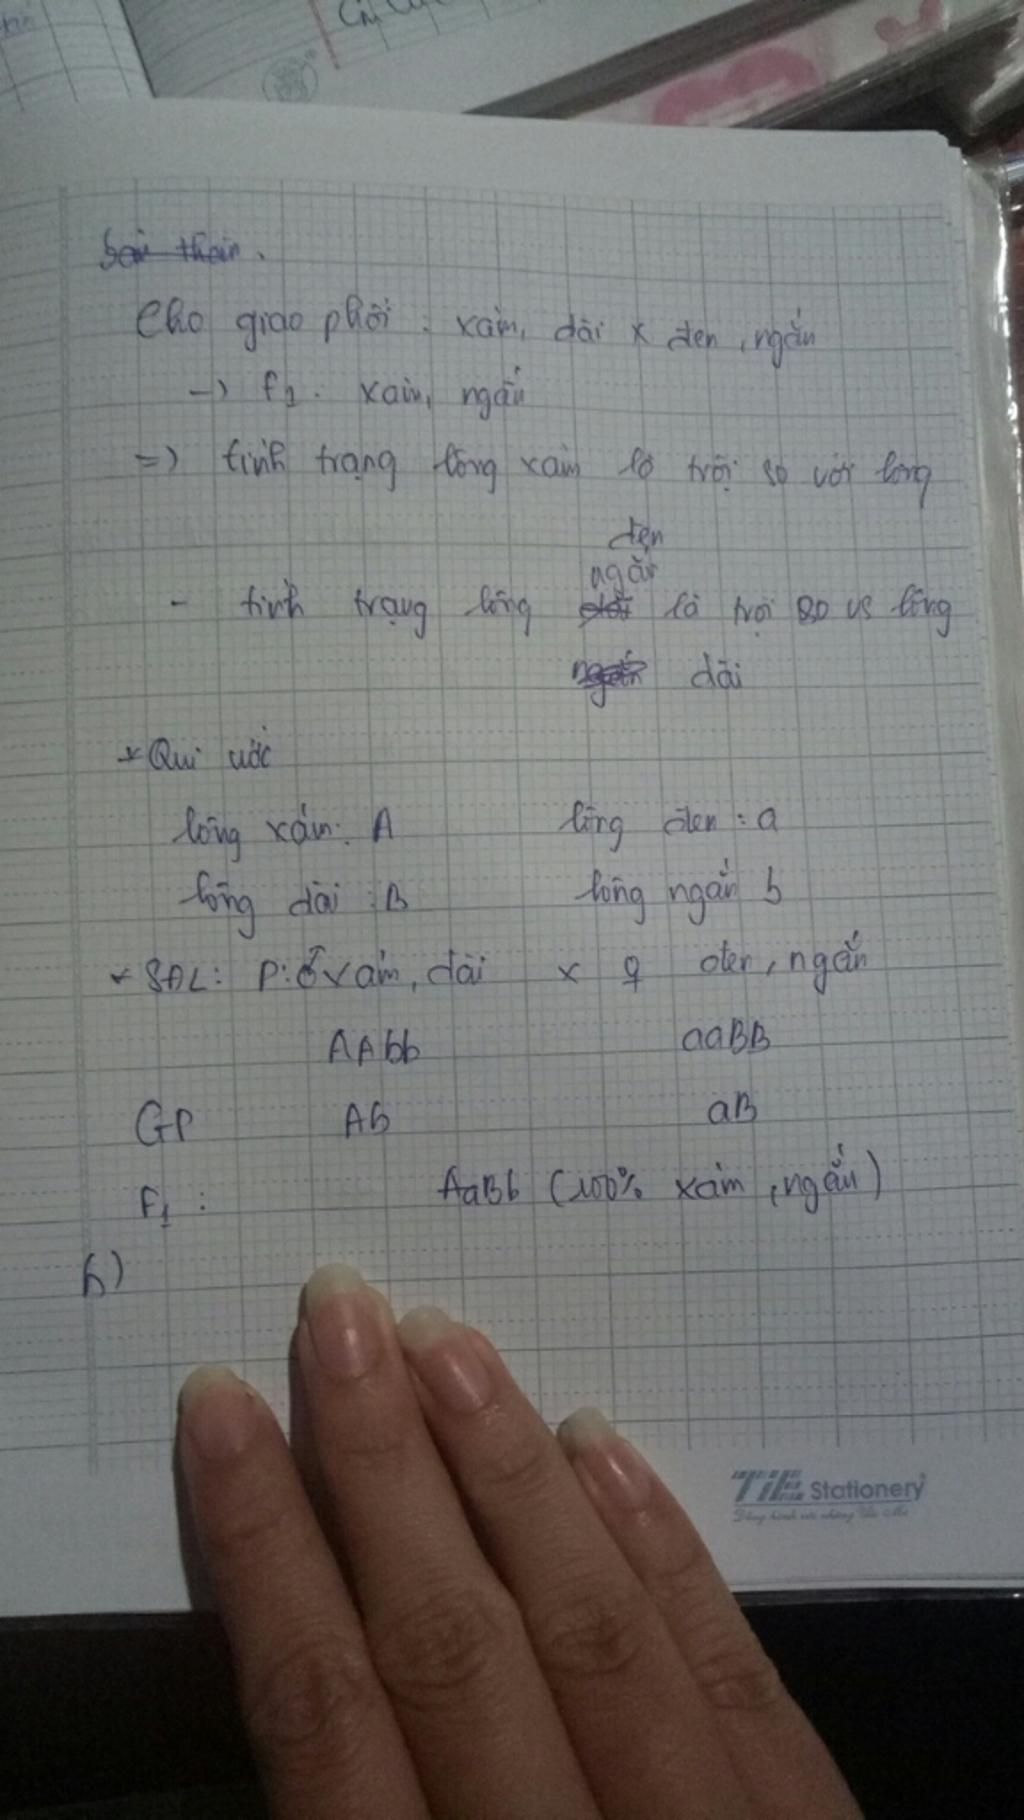 Cho giao phối : xám, dài x đen, ngắn
-> F1. xám, ngắn
=> tính trạng lông xám là trội so với lông
đen
ngắn
- tính trạng lông là trội so vs lông
dài
* Qui ước
lông xám: A lông đen: a
lông dài: B lông ngắn b
* SĐL: P: ♂ xám, dài x ♀ đen, ngắn
AAbb aaBB
GP Ab aB
F1 : AaBb (100% xám, ngắn)
b)
TIE Stationery